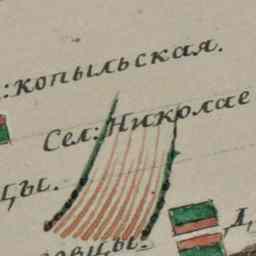 :копыльская.
Сел: Николае
цы.
Д,
овцы.